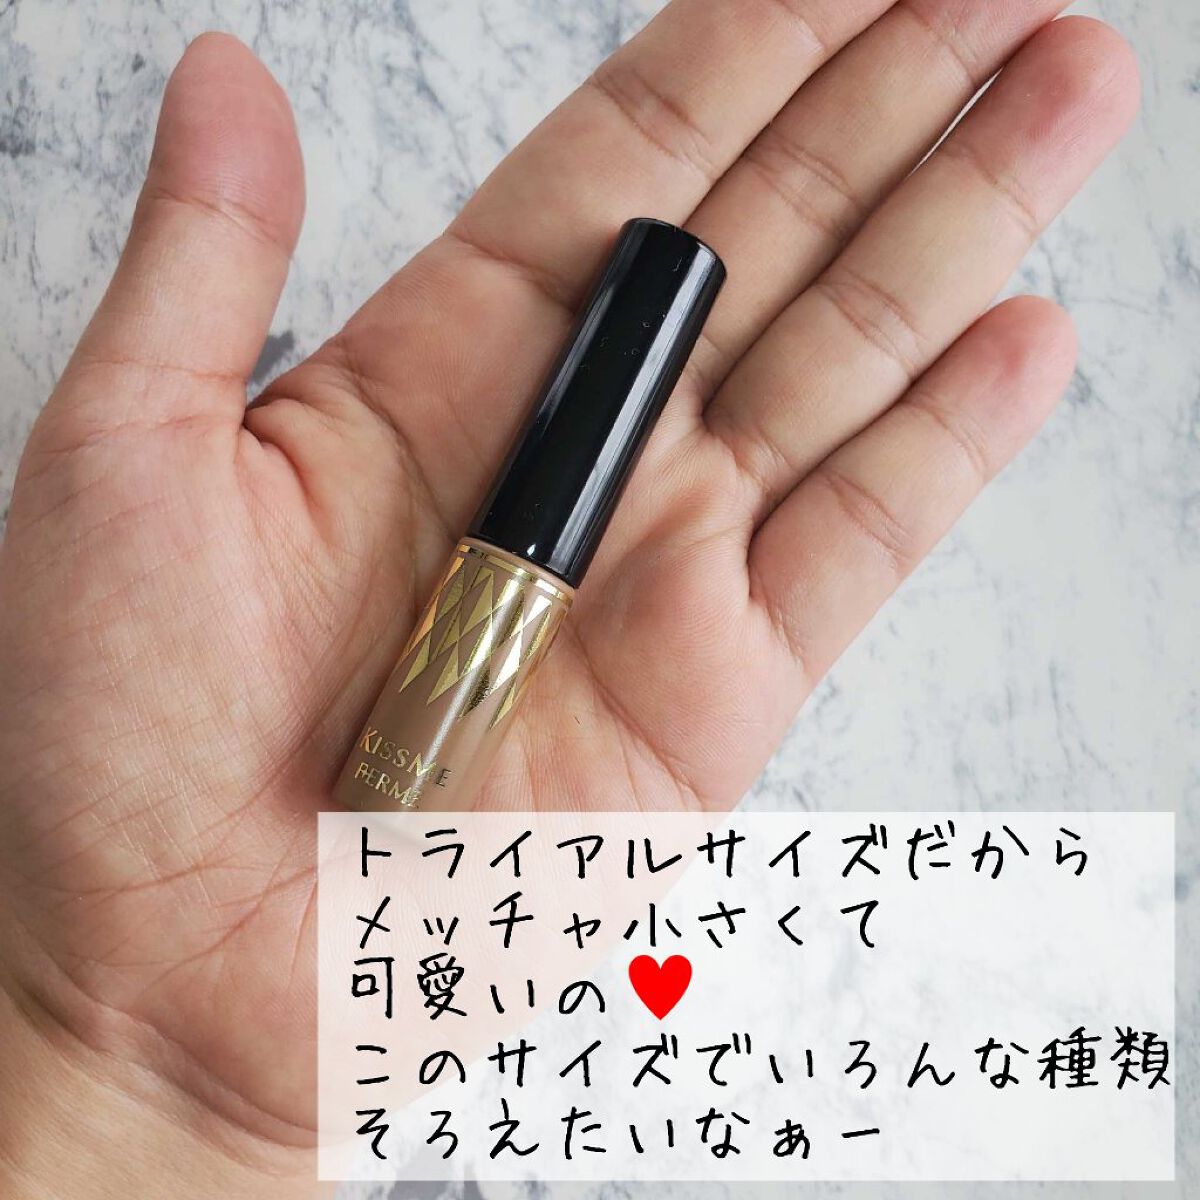 KISSME
FERME
トライアルサイズだから
メッチャ小さくて
可愛いの♥
このサイズでいろんな種類
そろえたいなぁー